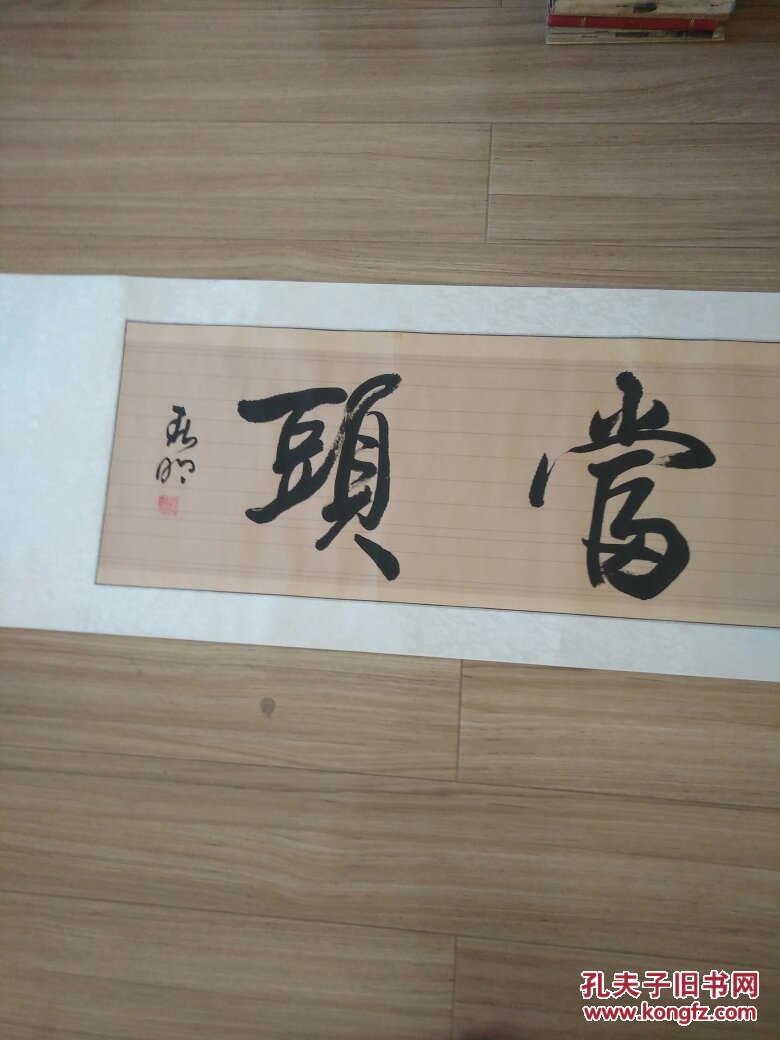 當頭
孔夫子旧书网
www.kongfz.com